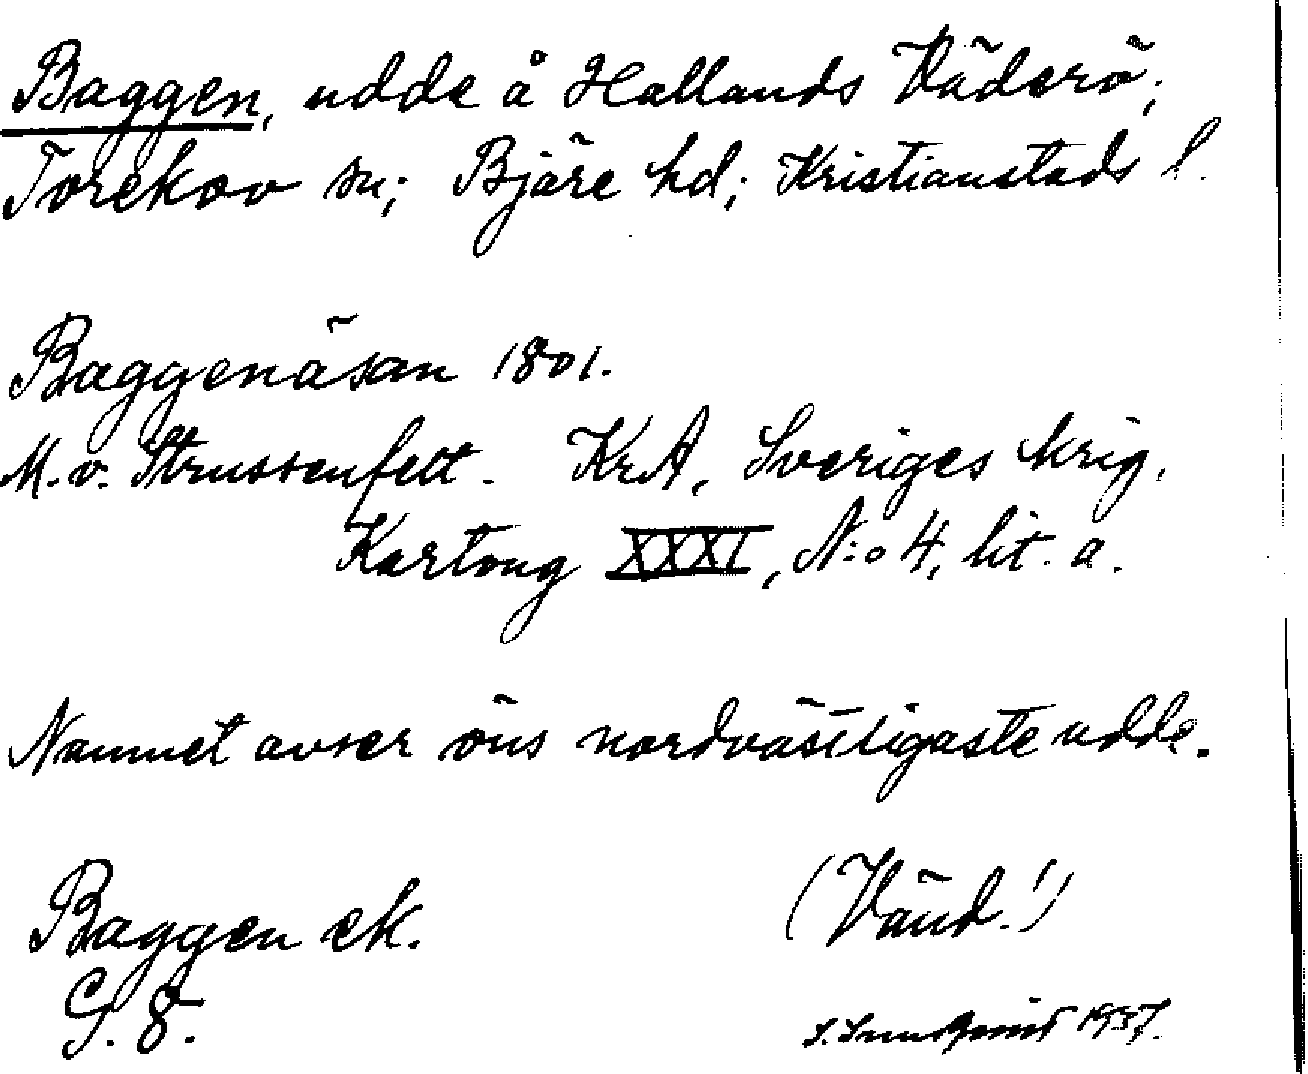 Baggen, udde å Hallands Väderö;
Torekov sn; Bjäre hd; Kristianstads l.
Baggenäsan 1801.
M. v. Strussenfelt. KrA, Sveriges krig.
Kartong XXXI, N:o 4, lit. a.
Namnet avser öns nordvästligaste udde.
Baggen ek.
(Vänd!)
G. 8.
S. 1937.